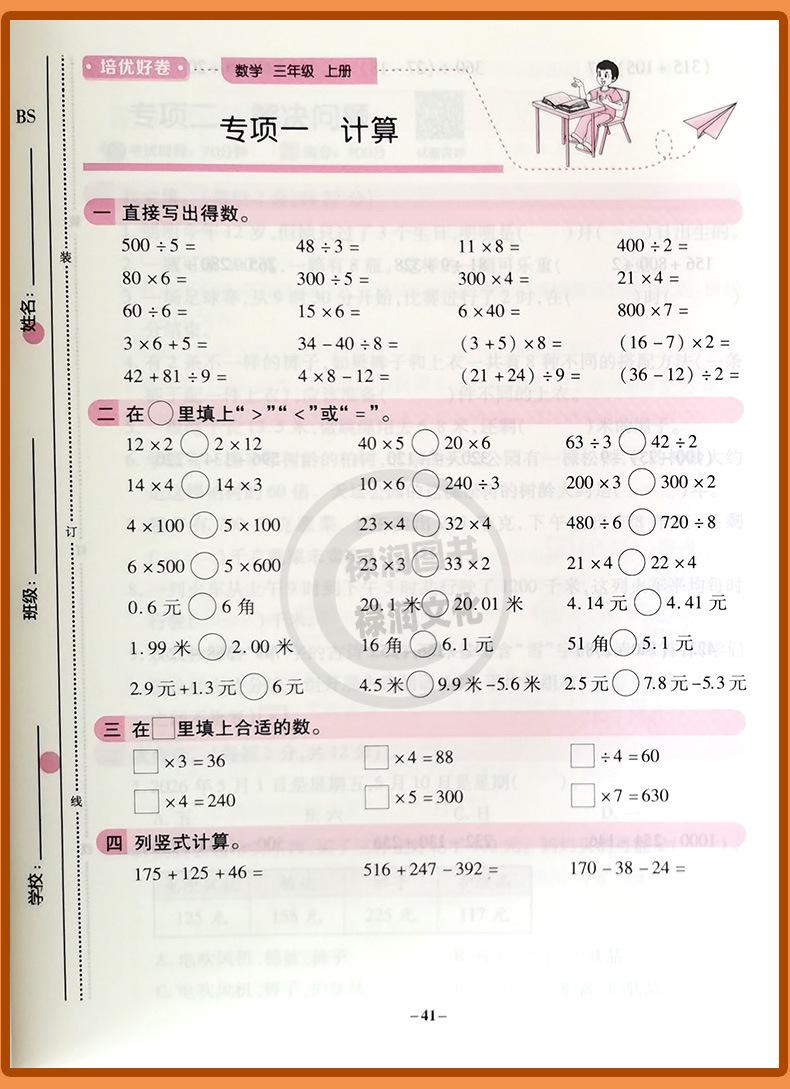 ·培优好卷·
数学 三年级 上册
BS
专项一 计算
一 直接写出得数。
500÷5= 48÷3= 11×8= 400÷2=
80×6= 300÷5= 300×4= 21×4=
60÷6= 15×6= 6×40= 800×7=
3×6+5= 34-40÷8= (3+5)×8= (16-7)×2=
42+81÷9= 4×8-12= (21+24)÷9= (36-12)÷2=
二 在○里填上“>”“<”或“=”。
12×2○2×12 40×5○20×6 63÷3○42÷2
14×4○14×3 10×6○240÷3 200×3○300×2
4×100○5×100 23×4○32×4 480÷6○720÷8
6×500○5×600 23×3○33×2 21×4○22×4
0.6元○6角 20.1米○20.01米 4.14元○4.41元
1.99米○2.00米 16角○6.1元 51角○5.1元
2.9元+1.3元○6元 4.5米○9.9米-5.6米 2.5元○7.8元-5.3元
三 在□里填上合适的数。
□×3=36 □×4=88 □÷4=60
□×4=240 □×5=300 □×7=630
四 列竖式计算。
175+125+46= 516+247-392= 170-38-24=
-41-
姓名:
班级:
学校:
装
订
线
禄润图书
禄润文化